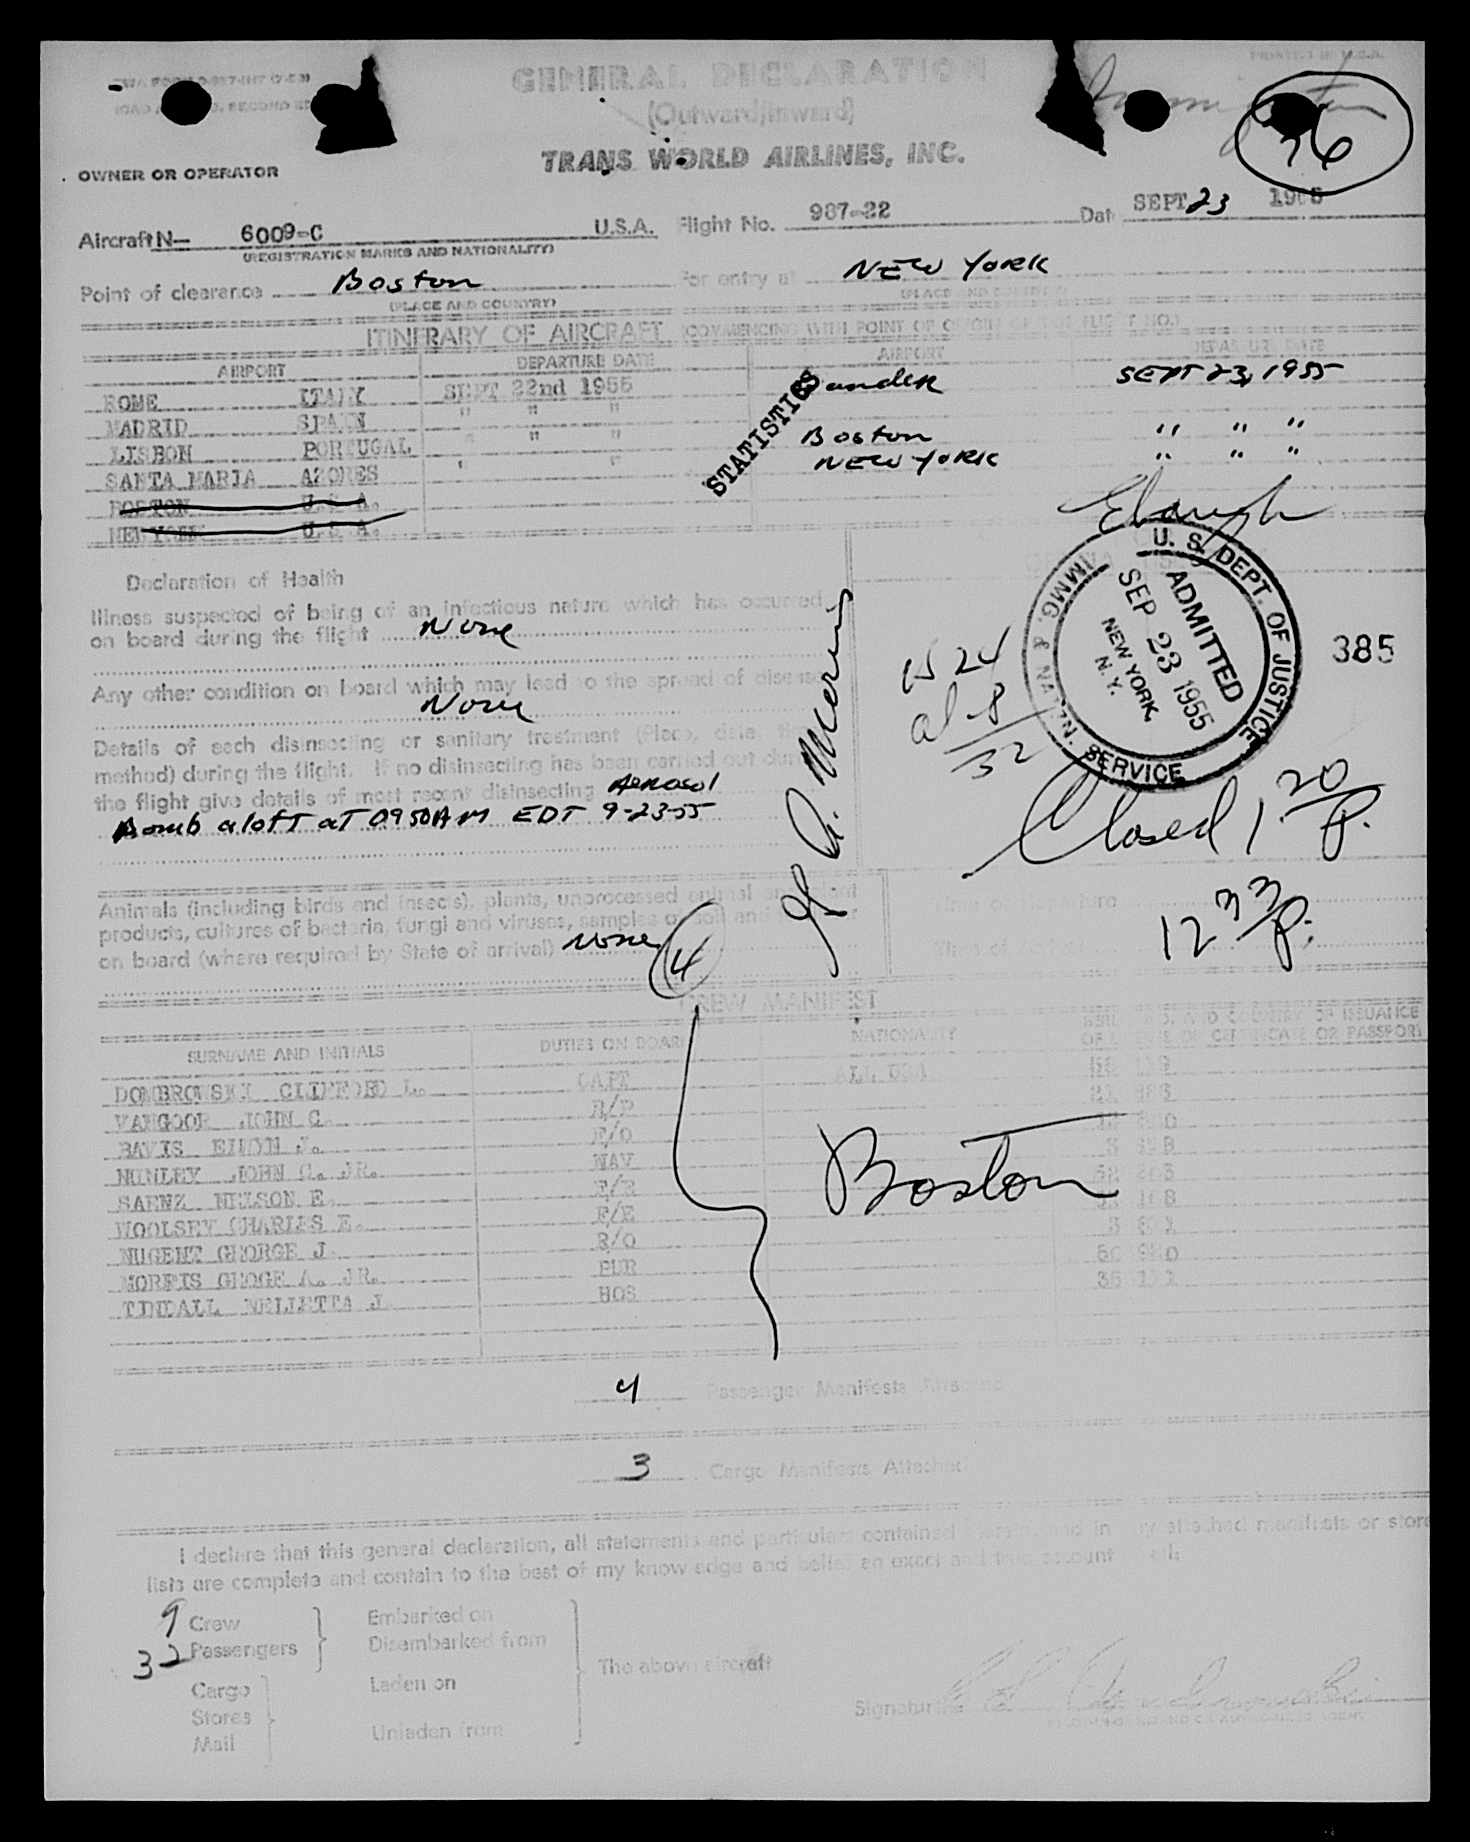 PRINTED IN U.S.A.
GENERAL DECLARATION
(Outward/Inward)
76
TRANS WORLD AIRLINES, INC.
OWNER OR OPERATOR
Aircraft N- 6009-C U.S.A. Flight No. 987-22 Date SEPT 23 1955
(REGISTRATION MARKS AND NATIONALITY)
Point of clearance Boston For entry at NEW YORK
(PLACE AND COUNTRY) (PLACE AND COUNTRY)
ITINERARY OF AIRCRAFT (COMMENCING WITH POINT OF ORIGIN OF FLIGHT NO.)
AIRPORT DEPARTURE DATE AIRPORT DEPARTURE DATE
ROME ITALY SEPT 22nd 1955 Gander SEPT 23, 1955
MADRID SPAIN " " "
LISBON PORTUGAL " " " Boston " " "
SANTA MARIA AZORES " " NEW YORK " " "
BOSTON U.S.A.
NEW YORK U.S.A.
STATISTICS
Declaration of Health
Illness suspected of being of an infectious nature which has occurred
on board during the flight None
Any other condition on board which may lead to the spread of disease
None
Details of each disinsecting or sanitary treatment (Place, date, time
method) during the flight. If no disinsecting has been carried out during
the flight give details of most recent disinsecting Aerosol
Bomb aloft at 0950AM EDT 9-23-55
U.S. DEPT. OF JUSTICE
IMMG. & NATZN. SERVICE
ADMITTED
SEP 23 1955
NEW YORK,
N.Y.
385
24
al 8
32
Closed 1 20 P.
12 33 P.
Animals (including birds and insects), plants, unprocessed animal and plant
products, cultures of bacteria, fungi and viruses, samples of soil and
on board (where required by State of arrival) None
4
CREW MANIFEST
SURNAME AND INITIALS DUTIES ON BOARD NATIONALITY
DOMBROWSKI CLIFFORD L. CAPT ALL USA
VANGOOR JOHN C. R/P
BAVIS EDWIN J. F/O
NUNLEY JOHN C. JR. NAV
SAENZ NELSON E. F/E
WOOLSEY CHARLES E. F/E
NUGENT GEORGE J R/O
MORRIS GEOGE A. JR. PUR
TINDALL NELLETTA J HOS
Boston
4 Passenger Manifests Attached
3 Cargo Manifests Attached
I declare that this general declaration, all statements and particulars contained therein, and in any attached manifests or store
lists are complete and contain to the best of my knowledge and belief an exact and true account
9 Crew
32 Passengers
Embarked on
Disembarked from
Cargo
Stores
Mail
Laden on
Unladen from
The above aircraft
Signature